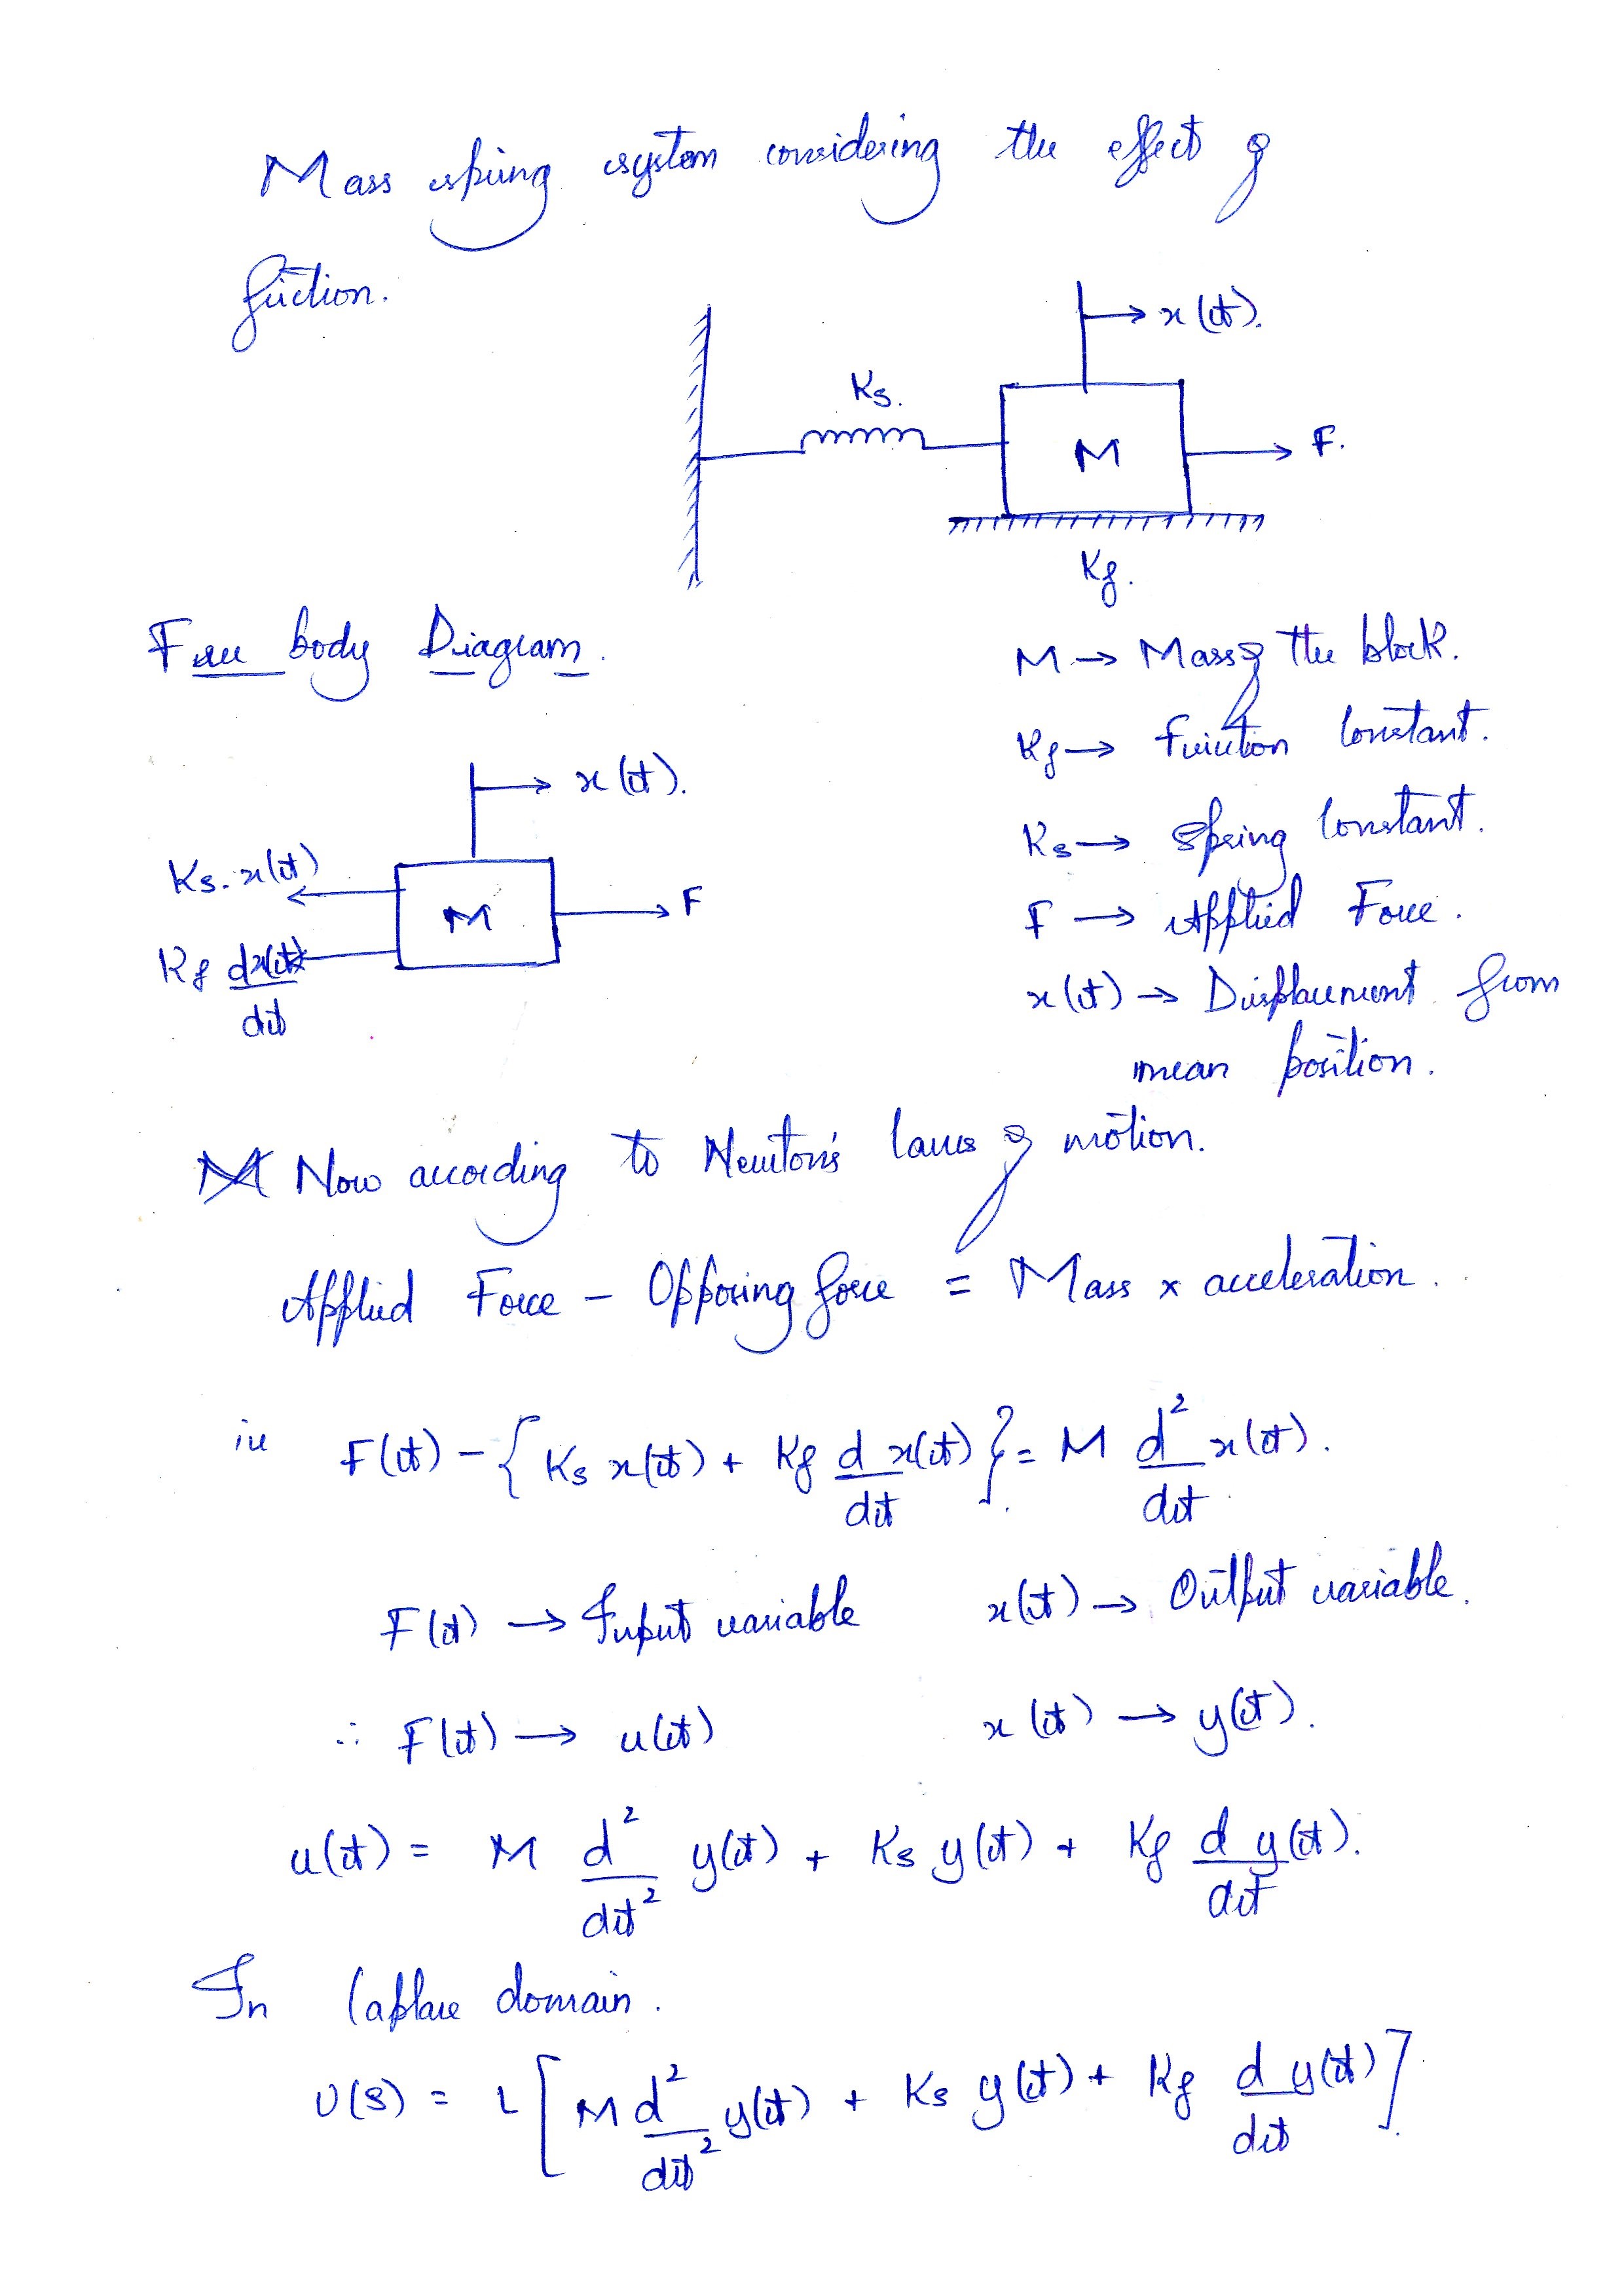 Mass spring system considering the effect of
friction.
x(t).
Ks.
M
F.
Kf.
Free body Diagram.
M → Mass of the block.
Kf → Friction Constant.
Ks → Spring Constant.
F → Applied Force.
x(t) → Displacement from
mean position.
x(t).
Ks.x(t)
M
F
Kf dx(t)/dt
Now according to Newton's laws of motion.
Applied Force - Opposing force = Mass x acceleration.
ie F(t) - { Ks x(t) + Kf d/dt x(t) } = M d²/dt x(t).
F(t) → Input variable x(t) → Output variable.
∴ F(t) → u(t) x(t) → y(t).
u(t) = M d²/dt² y(t) + Ks y(t) + Kf d/dt y(t).
In Laplace domain.
U(s) = L [ M d²/dt² y(t) + Ks y(t) + Kf d/dt y(t) ].